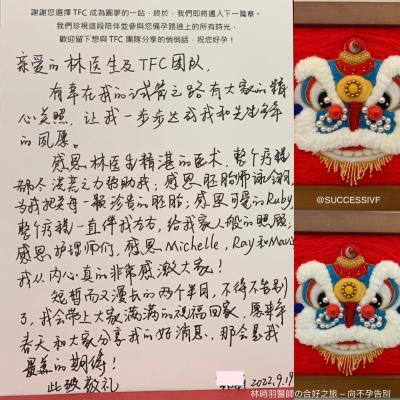 謝謝您選擇 TFC 成為圓夢的一站，終於，我們即將邁入下一篇章。
我們珍視這段陪伴並參與您備孕路途上的所有時光，
歡迎留下想與 TFC 團隊分享的悄悄話，祝您好孕！
亲爱的林医生及TFC团队，
有幸在我的试管之路有大家的精
心关照，让我一步步达成我和先生多年
的夙愿。
感恩林医生精湛的医术，整个疗程
都尽洪荒之力帮助我；感恩胚胎师
为我把关每一颗珍贵的胚胎；感恩可爱的Ruby
整个疗程一直伴我左右，给我家人般的照顾；
感恩护理师们，感恩Michelle, Ray和
我从内心真的非常感激大家！
短暂而又漫长的两个半月，不得不告别
了，我会带上大家满满的祝福回家，愿来年
春天和大家分享我的好消息，那会是我
最美的期待！
此致敬礼
2022.9.19
@SUCCESSIVF
林時羽醫師の合好之旅 – 向不孕告別